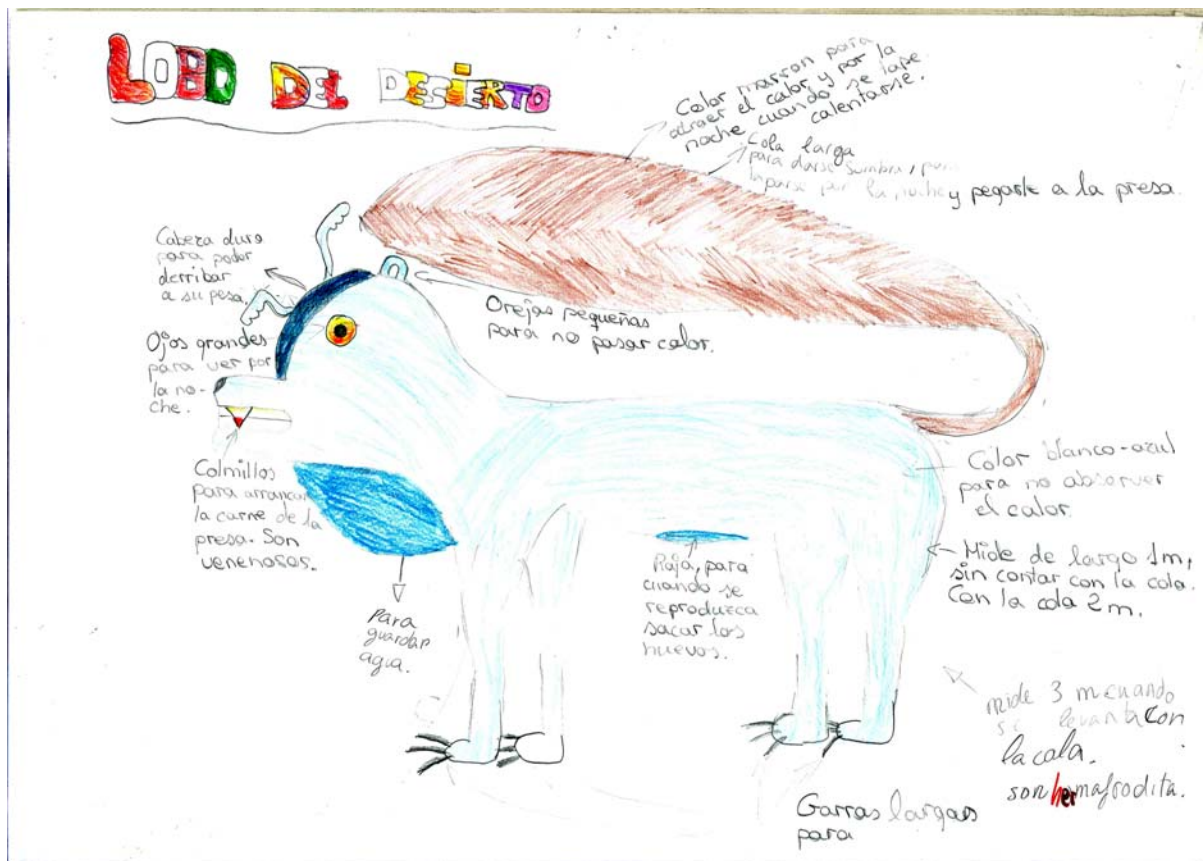 LOBO DEL DESIERTO
Color marron para
atraer el calor y por la
noche cuando se tape
calentarse.
Cola larga
para darse sombra, para
taparse por la noche y pegarle a la presa.
Cabeza dura
para poder
derribar
a su pesa.
Orejas pequeñas
para no pasar calor.
Ojos grandes
para ver por
la no-
che.
Colmillos
para arrancar
la carne de la
presa. Son
venenosos.
Para
guardar
agua.
Raja, para
cuando se
reproduzca
sacar los
huevos.
Color blanco-azul
para no absorver
el calor.
Mide de largo 1m,
sin contar con la cola.
Con la cola 2 m.
mide 3 m cuando
se levanta con
la cola.
son hermafrodita.
Garras largas
para